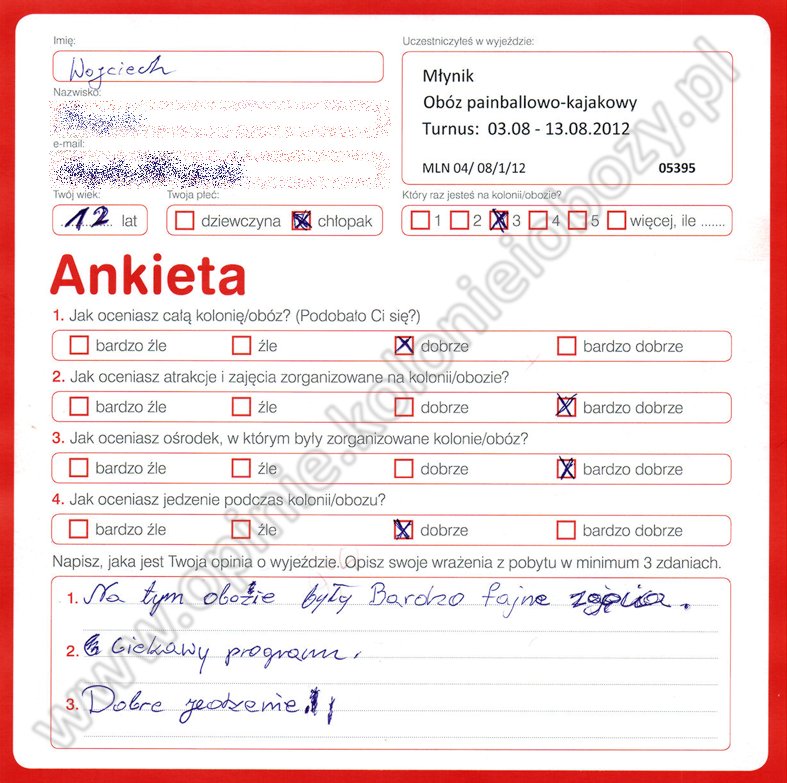 Imię:
Wojciech
Nazwisko:
e-mail:
Twój wiek:
12 lat
Twoja płeć:
dziewczyna chłopak
Uczestniczyłeś w wyjeździe:
Młynik
Obóz painballowo-kajakowy
Turnus: 03.08 - 13.08.2012
MLN 04/ 08/1/12 05395
Który raz jesteś na kolonii/obozie?
1 2 3 4 5 więcej, ile .......
Ankieta
1. Jak oceniasz całą kolonię/obóz? (Podobało Ci się?)
bardzo źle źle dobrze bardzo dobrze
2. Jak oceniasz atrakcje i zajęcia zorganizowane na kolonii/obozie?
bardzo źle źle dobrze bardzo dobrze
3. Jak oceniasz ośrodek, w którym były zorganizowane kolonie/obóz?
bardzo źle źle dobrze bardzo dobrze
4. Jak oceniasz jedzenie podczas kolonii/obozu?
bardzo źle źle dobrze bardzo dobrze
Napisz, jaka jest Twoja opinia o wyjeździe. Opisz swoje wrażenia z pobytu w minimum 3 zdaniach.
1. Na tym obozie były Bardzo fajne zajęcia.
2. Ciekawy program.
3. Dobre jedzenie!
www.opinie.kolonieiobozy.pl